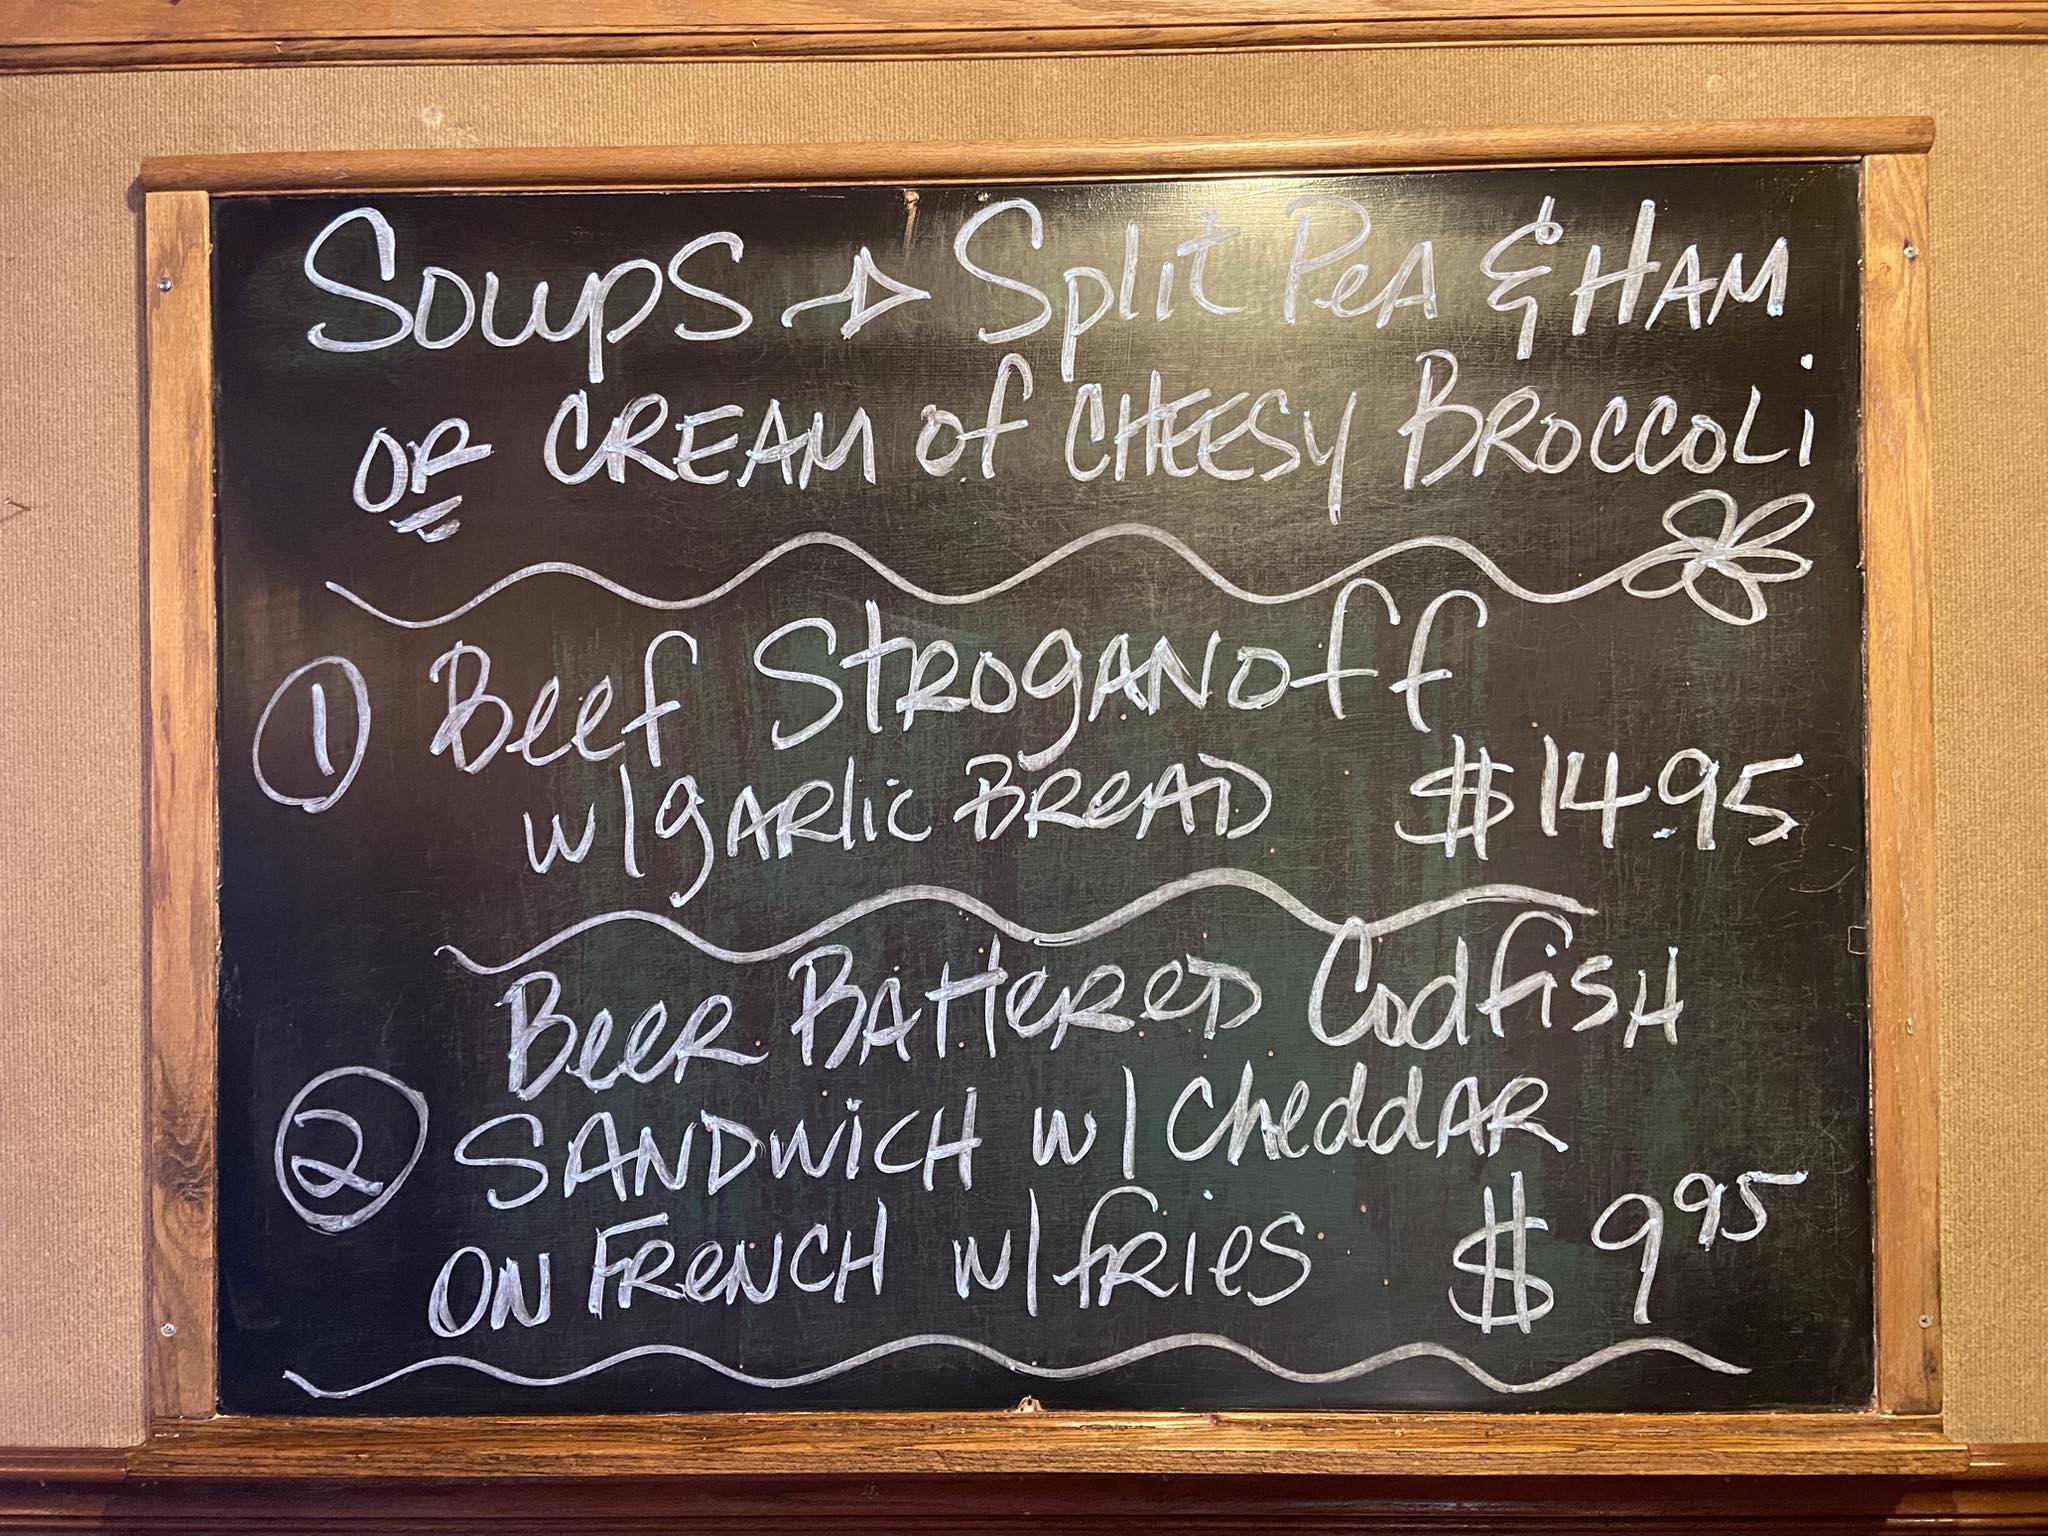 Soups → Split Pea & Ham
or Cream of Cheesy Broccoli
① Beef Stroganoff
w/garlic Bread $14.95
Beer Battered Codfish
② Sandwich w/cheddar
on French w/fries $9.95